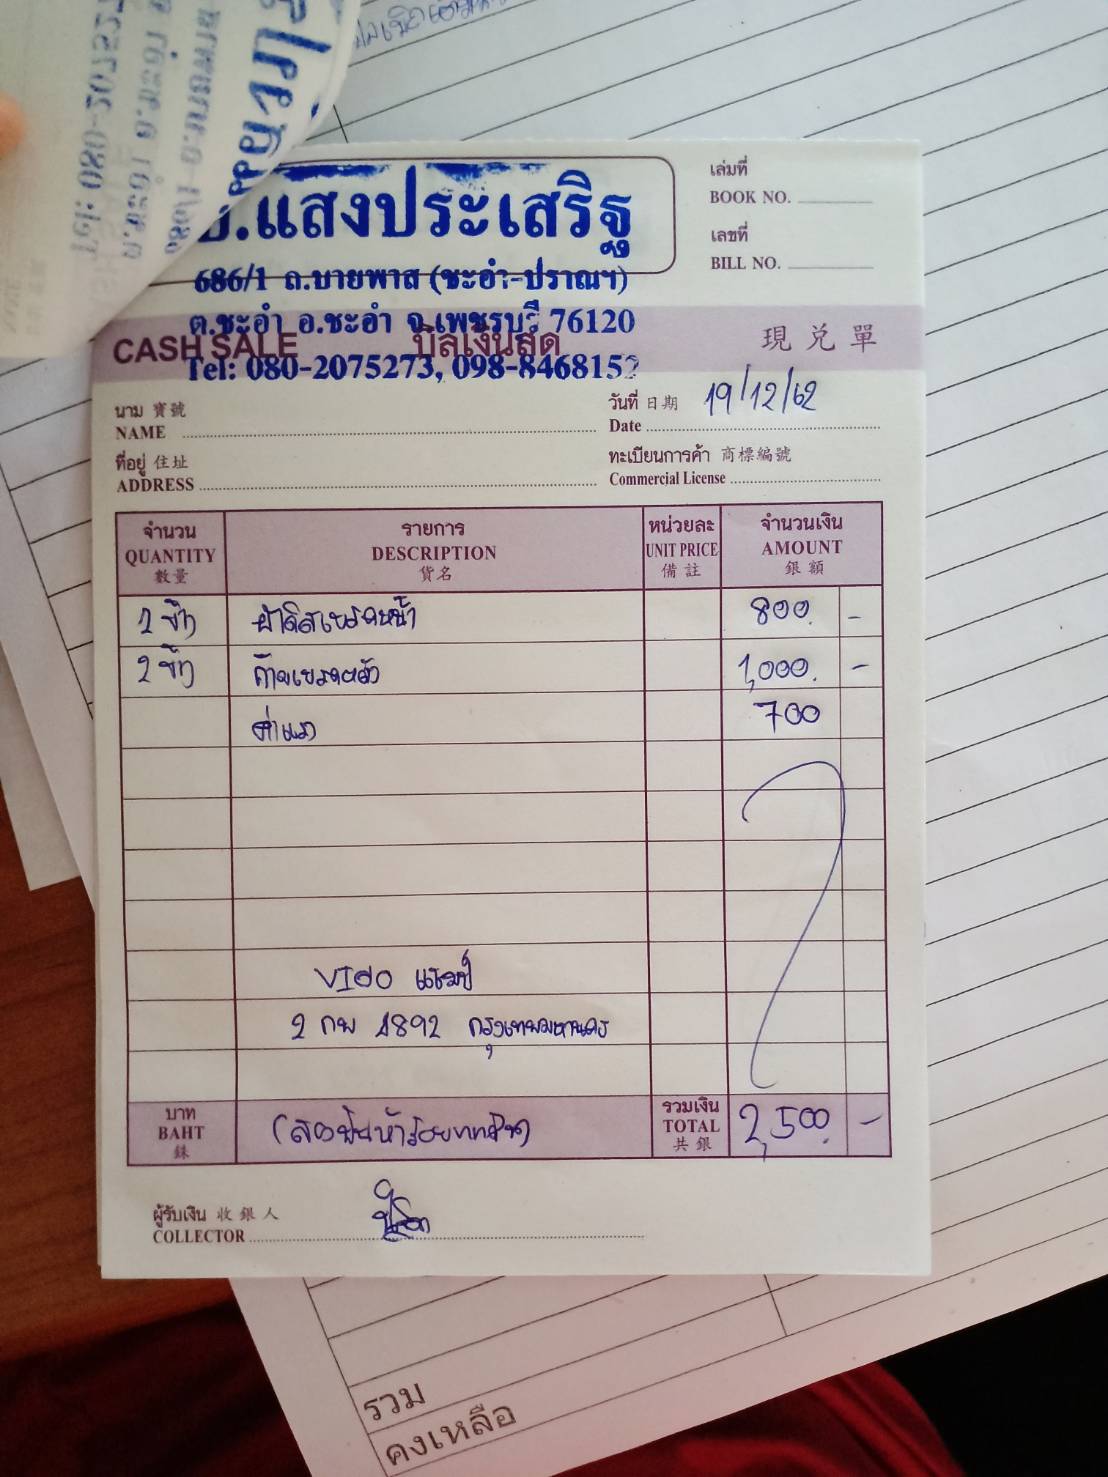 .แสงประเสริฐ
686/1 ถ.บายพาส (ชะอำ-ปราณฯ)
ต.ชะอำ อ.ชะอำ จ.เพชรบุรี 76120
Tel: 080-2075273, 098-846815
เล่มที่
BOOK NO.
เลขที่
BILL NO.
CASH SALE บิลเงินสด 現兌單
นาม 寶號
NAME
วันที่ 日期 19/12/62
Date
ที่อยู่ 住址
ADDRESS
ทะเบียนการค้า 商標編號
Commercial License
จำนวน รายการ หน่วยละ จำนวนเงิน
QUANTITY DESCRIPTION UNIT PRICE AMOUNT
數量 貨名 備註 銀額
1 ชิ้น ผ้าดิสเบรคหน้า 800. -
2 ชิ้น ก้ามเบรคหลัง 1,000. -
ค่าแรง 700
VIGO แชมป์
2 กพ 4892 กรุงเทพมหานคร
บาท
BAHT
銖
(สองพันห้าร้อยบาทถ้วน)
รวมเงิน
TOTAL
共銀
2,500. -
ผู้รับเงิน 收銀人
COLLECTOR
รวม
คงเหลือ